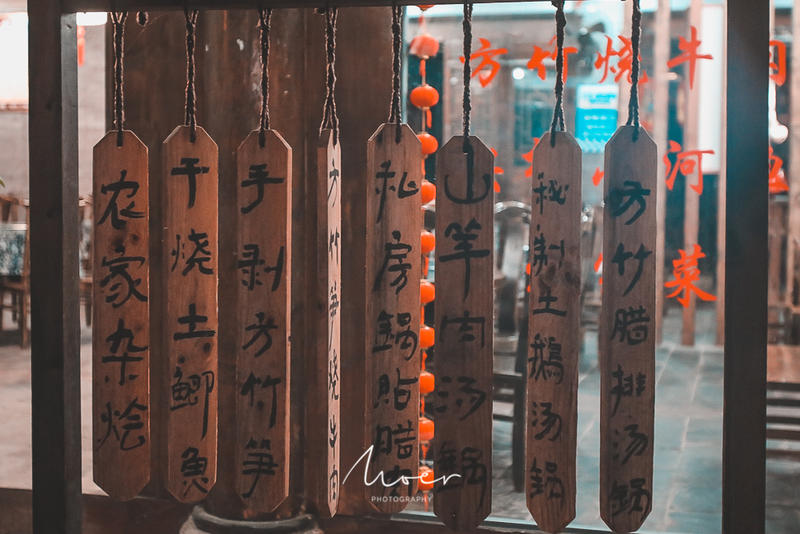 农家杂烩
干烧土鲫魚
手剥方竹笋
方竹笋烧牛肉
私房锅贴腊肉
山羊肉汤锅
秘制土鹅汤锅
方竹腊排汤锅
方竹烧牛肉
河
菜
Moer
PHOTOGRAPHY